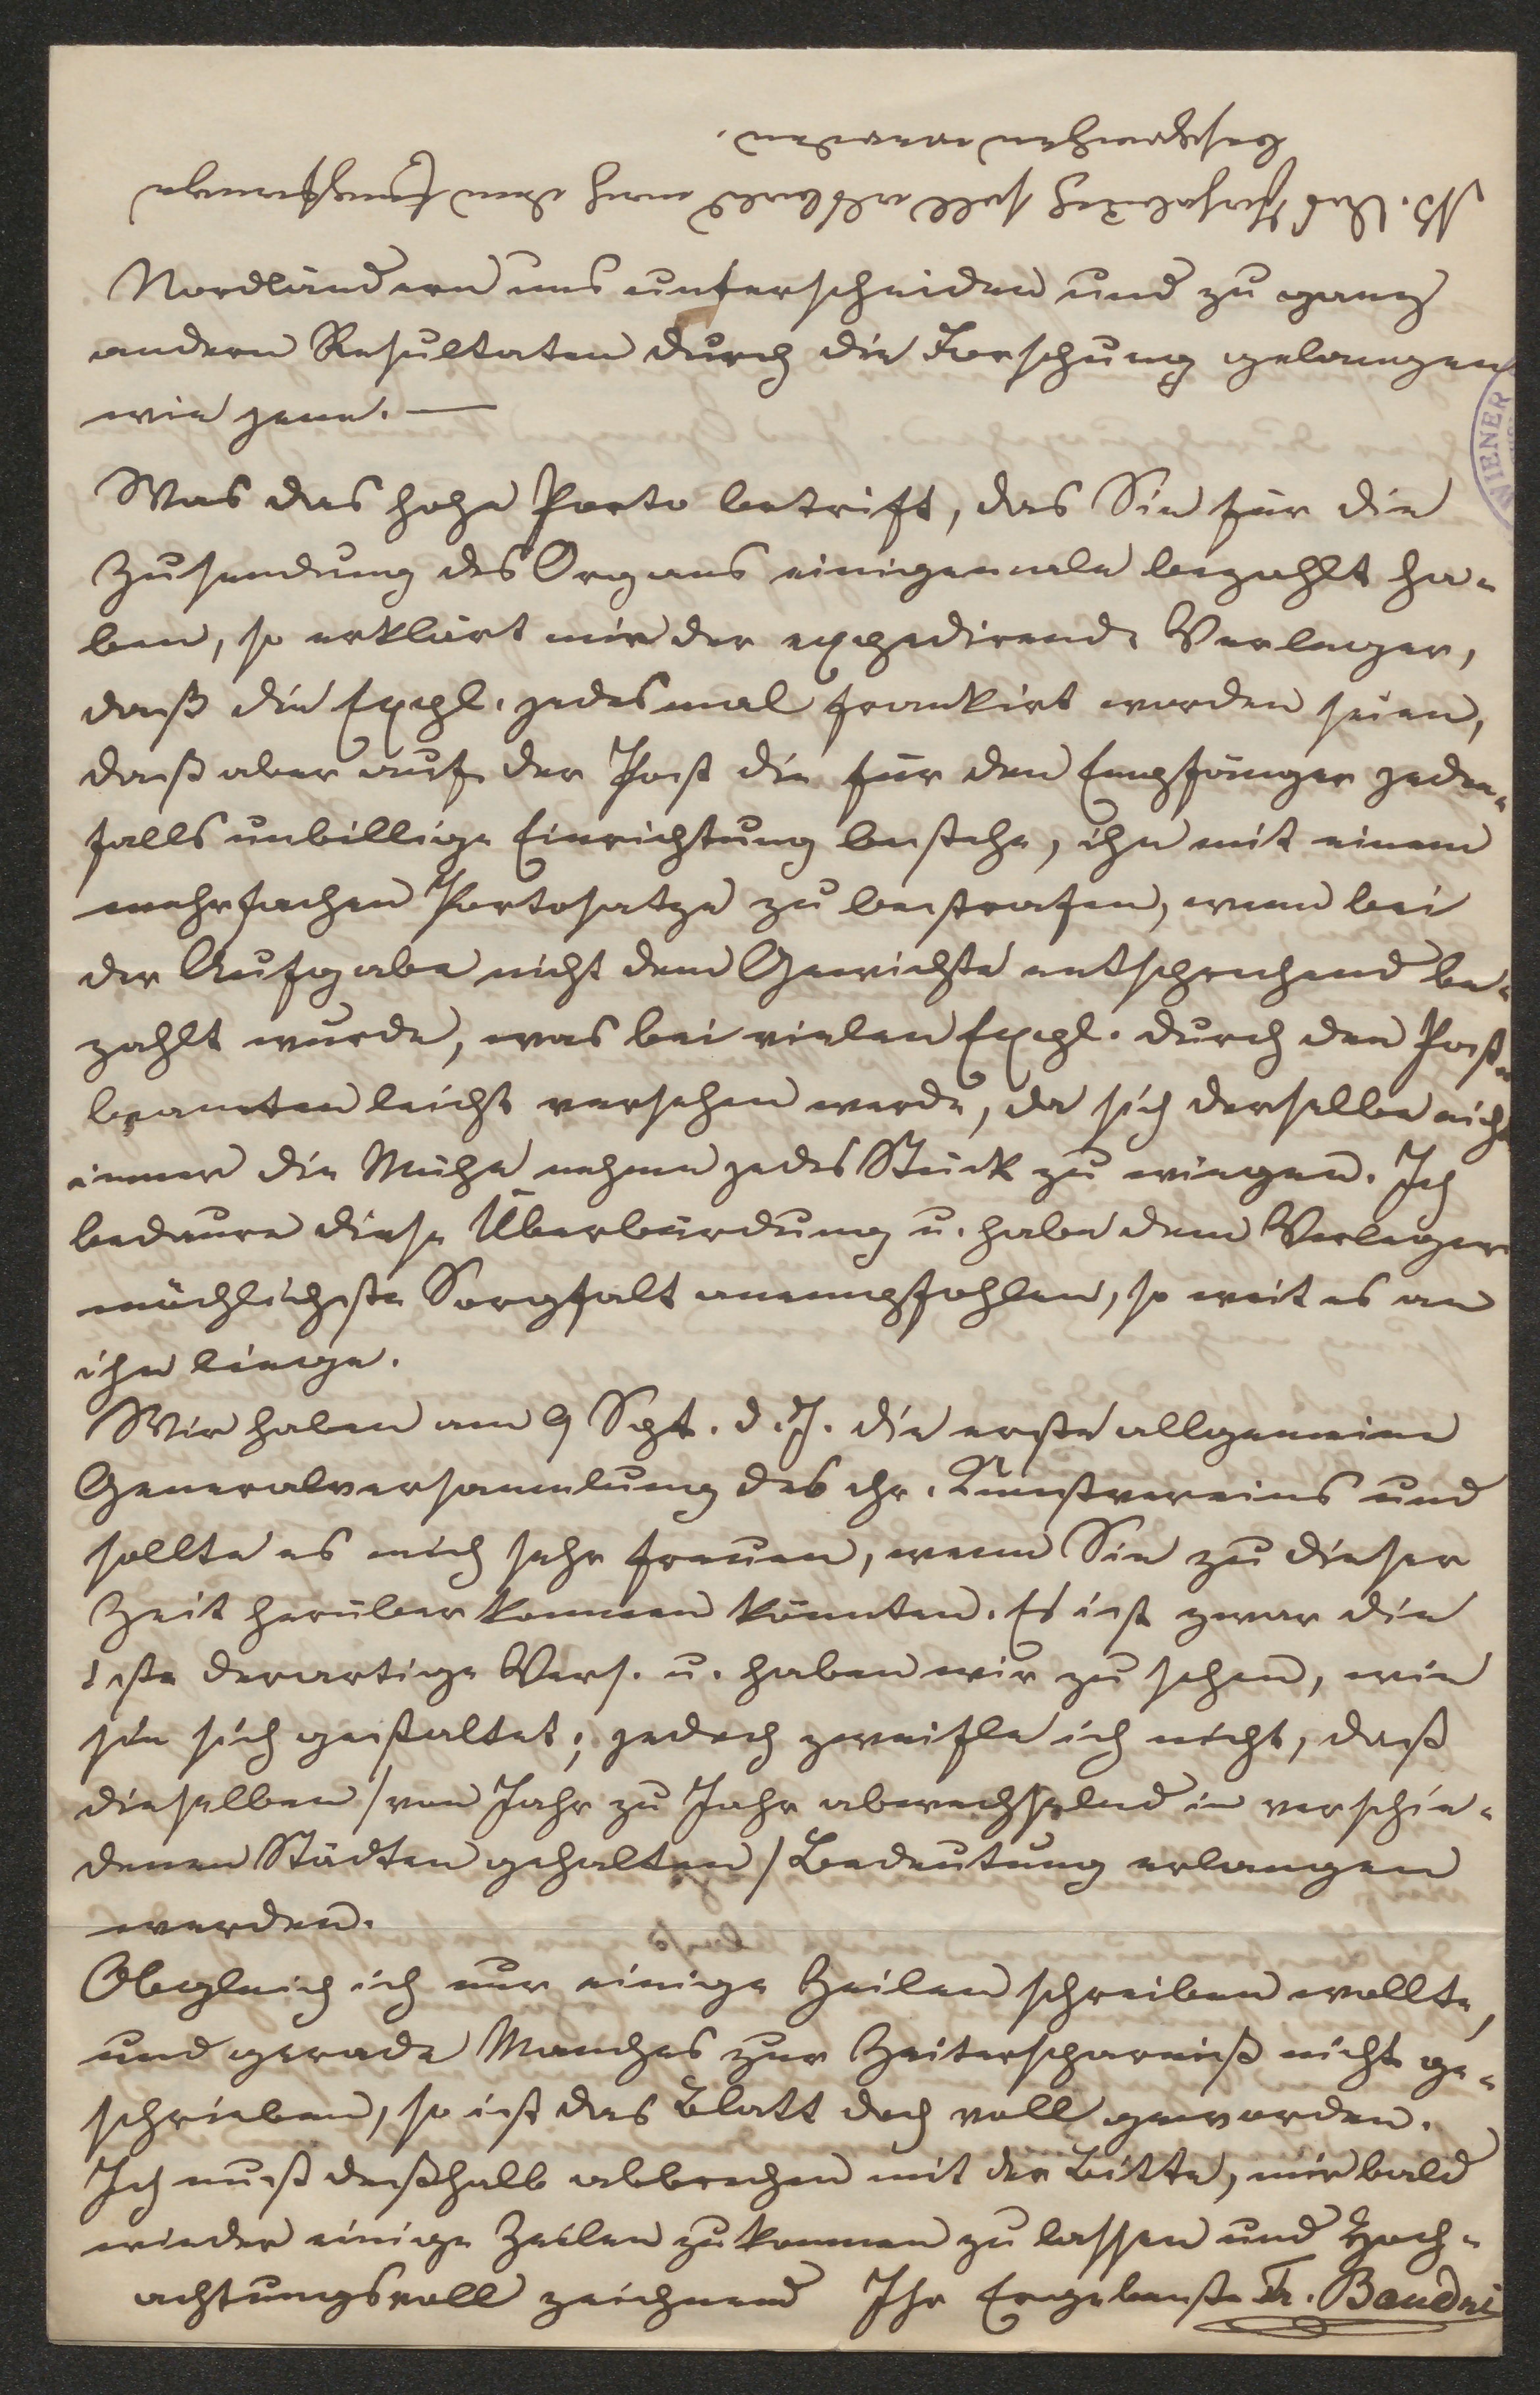 Nordländern uns unterscheiden und zu ganz
andern Resultaten durch die Forschung gelangen
wie jene. —
Was das hohe Porto betrift, das Sie für die
Zusendung des Organs einigemale bezahlt ha-
ben, so erklärt mir der expedirende Verleger,
daß die Expl. jedesmal frankirt worden seien,
daß aber auf der Post die für den Empfänger jeden-
falls unbillige Einrichtung bestehe, ihn mit einem
mehrfachen Portosatze zu bestrafen, wenn bei
der Aufgabe nicht dem Gewichte entsprechend be-
zahlt wurde, was bei vielen Expl. durch den Post-
beamten leicht versehen werde, da sich derselbe nicht
immer die Mühe nehme jedes Stück zu wiegen. Ich
bedaure diese Überbürdung u. habe dem Verleger
möchlichste Sorgfalt anempfohlen, so weit es an
ihm liege.
Wir haben am 9 Spt. d. J. die erste allgemeine
Generalversammlung des chr. Kunstvereins und
sollte es mich sehr freuen, wenn Sie zu dieser
Zeit herüber kommen könnten. Es ist zwar die
1ste derartige Vers. u. haben wir zu sehen, wie
sie sich gestaltet; jedoch zweifle ich nicht, daß
dieselben /von Jahr zu Jahr abwechselnd in verschie-
denen Städten gehalten/ Bedeutung erlangen
werden.
Obgleich ich nur einige Zeilen schreiben wollte,
und gerade Manches zur Zeitersparniß nicht ge-
schrieben, so ist das Blatt doch voll geworden.
Ich muß deßhalb abbrechen mit der Bitte, mir bald
wieder einige Zeilen zukommen zu lassen und Hoch-
achtungsvoll zeichnend Ihr Ergebenste Fr. Baudri
NB. Das soll alsbald nach dem
besprochen werden.
WIENER